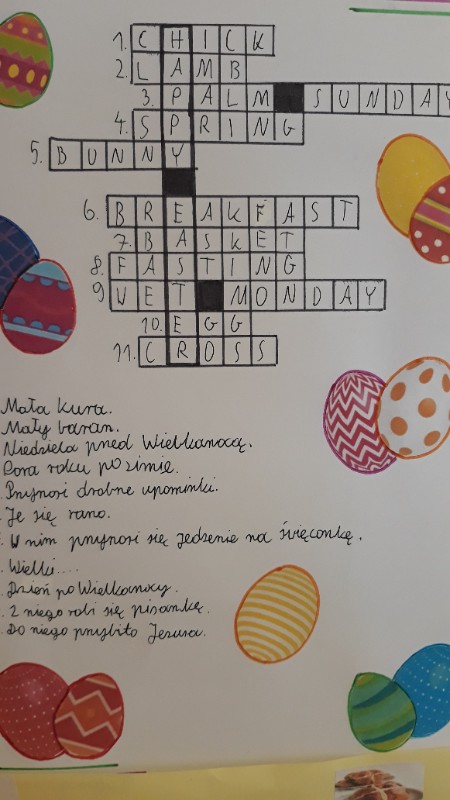 1. CHICK
2. LAMB
3. PALM SUNDAY
4. SPRING
5. BUNNY
6. BREAKFAST
7. BASKET
8. FASTING
9 WET MONDAY
10. EGG
11. CROSS
Mała kura.
Mały baran.
Niedziela przed Wielkanocą.
Pora roku po zimie.
Przynosi drobne upominki.
Je się rano.
W nim przynosi się jedzenie na święconkę.
Wielki....
Dzień po Wielkanocy.
Z niego robi się pisankę.
Do niego przybito Jezusa.